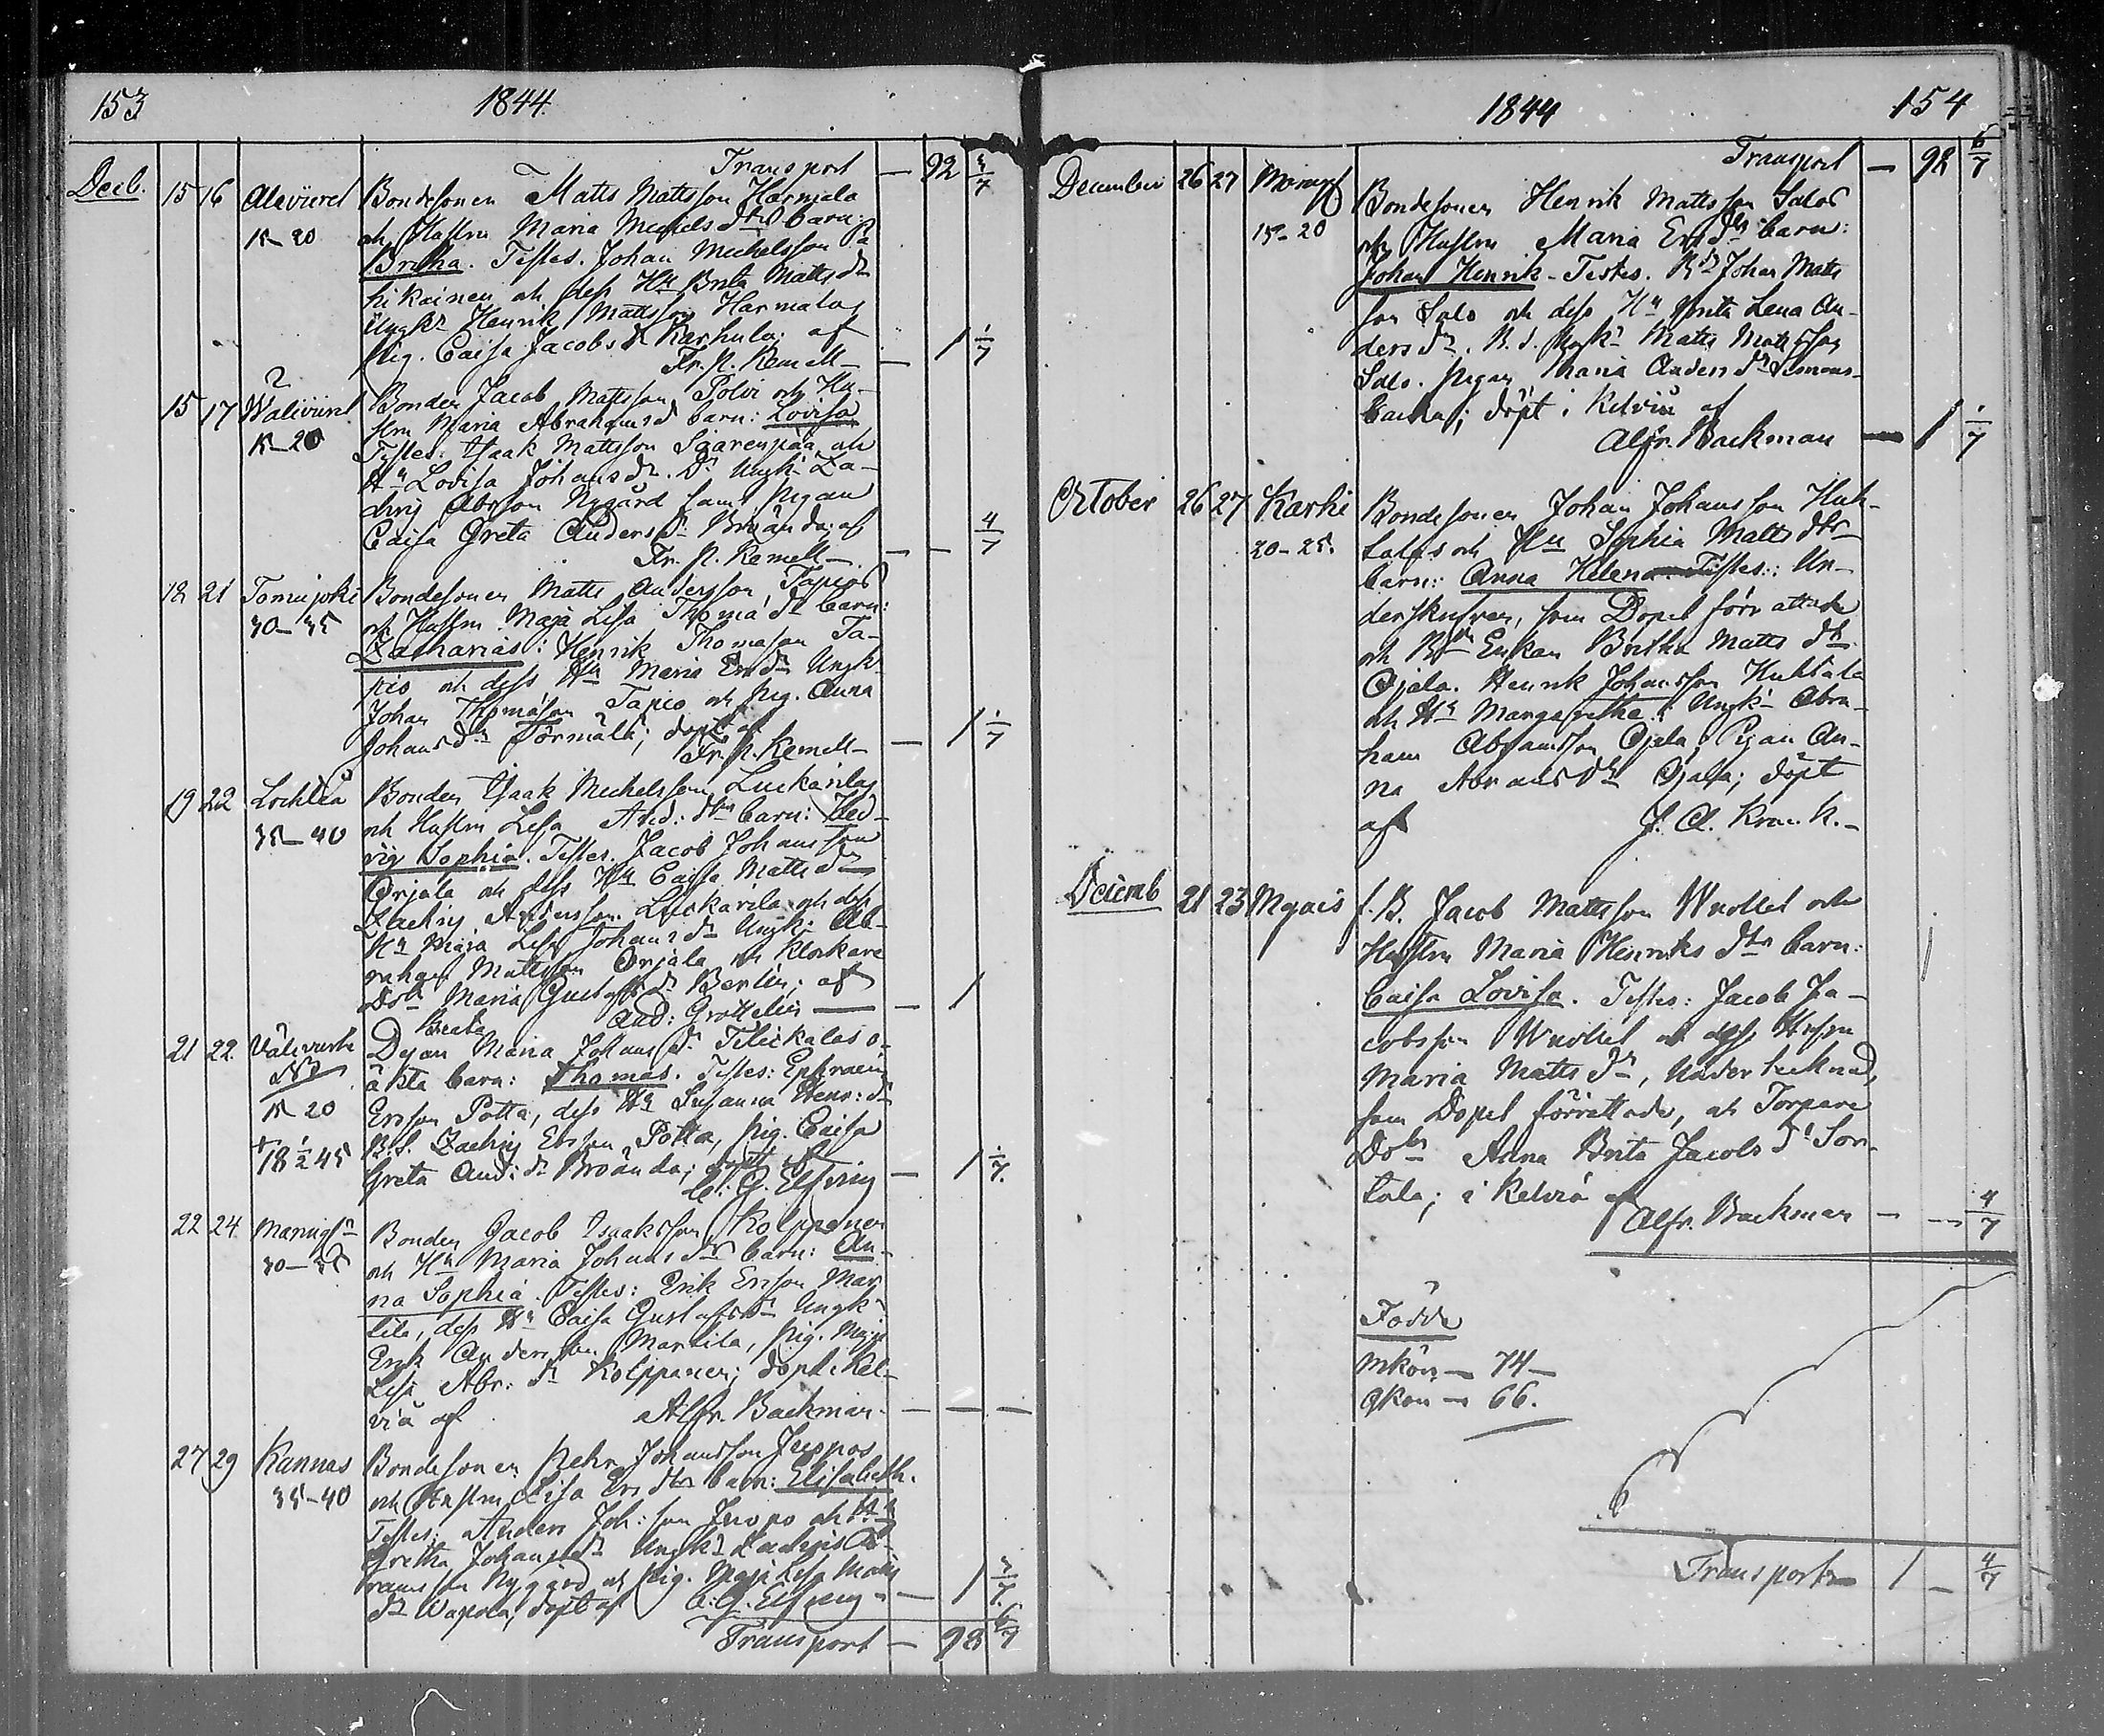 153
1844.
Transport — 92 3/7
Decb. 15 16 Aleviirel Bondesonen Matts Mattsson Harmala
15–20 och Hustrun Maria Michels dtr barn:
Britha. Testes. Johan Michelsson
och dess Hu Brita Matts dr
Ungkn Henrik Mattsson Harmala
Pig. Caisa Jacobs dr Karhula; af
Fr. P. Kemell — — 1 1/7
15 17 Waliviirel Bonden Jacob Mattsson Polvi och Hu-
15–20 strn Maria Abrahamsd barn: Lovisa
Testes: Isaak Mattsson Saarenpää och
Hu Lovisa Johans dr. Dr Ungk. Za-
chris Abrsson Nygård samt pigan
Caisa Greta Anders dr Broända; af
Fr. P. Kemell — — — 4/7
18 21 Tomujoki Bondesonen Matts Andersson Tapios
30–35 och Hustrun Maja Lisa Thoma dr barn:
Zacharias: Henrik Thomason Ta-
pio och dess Hu Maria Ers dr Ungk
Johan Thomason Tapio och pig. Anna
Johans dr Törmälä; döpt af
Fr. P. Kemell — — 1 1/7
19 22 Lochteå Bonden Isaak Michelsson Luckarila
35–40 och Hustrun Lisa And: dtrs barn: Hed-
vig Sophia. Testes. Jacob Johansson
Orjala och dess Hu Caisa Matts dr
Zachris Andersson Luckarila och dess
Hu Maja Lisa Johans dr Ungk: Ab-
raham Mattsson Orjala och Klockare
Dotr Maria Gustafs dr Berlin; af
And: Grottelin — — 1
Beata
21 22 Välivirre Dejan Maria Johans dr Teliskalas o-
äkta barn: Thomas. Testes: Ephraim
15 20 Ersson Potta, dess Hu Susanna Henr: dr
+18 1/2 45 B. S. Zachris Ersson Potta, pig. Caisa
Greta And: dr Broända; döpt af
C. G. Elfving — 1 1/7.
22 24 Bonden Jacob Isaaksson Kolppanen
30–35 och Hu Maria Johans dtrs barn: An-
na Sophia. Testes: Erik Ersson Mar-
tila, dess Hu Caisa Gustafs dr Ungk
Erik Andersson Martila, pig. Maja
Lisa Abr: dr Kolppanen; döpt i Kel-
viå af Alfr. Backman. — — —
27 29 Kannas Bondesonen Pehr Johansson Juopos
35–40 och Hustrun Lisa Ers dtr barn: Elisabeth.
Testes: Anders Joh: son Juopo och Hu
Gretha Johans dr Ungkn Zachris Ab-
ramsson Nygård och pig. Maja Lisa Matts
dr Wapola, döpt af C. G. Elfving — 1 3/7
Transport — 98 6/7
1844
154
Transport — 98 6/7
December 26 27 Bondesonen Henrik Mattsson Salos
15–20 och Hustrun Maria Ers dtrs barn:
Johan Henrik – Testes. Bdn Johan Matts
son Salo och dess Hu Brita Lena An-
ders dr. B. S. Ungk: Matts Mattsson
Salo. pigan Maria Anders dr Simons-
backa; döpt i Kelviå af
Alfr. Backman — 1 1/7
October 26 27 Karhi Bondesonen Johan Johansson Huh-
20–25. talas och Hu Sophia Matts dtr
barn: Anna Helena. Testes: Un-
derskrifvn, som Dopet förrättade
och Bde Enkan Britha Matts dr
Ojala. Henrik Johansson Huhtala
och Hu Margaretha. Ungk: Abra-
ham Abramsson Ojala, Pigan An-
na Abrams dr Ojala; döpt
af J. A. Kranck.
Decemb 21 23 f. B. Jacob Mattsson Wuollet och
Hustrun Maria Henriks dtr barn:
Caisa Lovisa. Testes: Jacob Ja-
cobsson Wuollet och dess Hustru
Maria Matts dr, Undertecknad,
som Dopet förrättade, och Torpare
Dotr Anna Brita Jacobs dr Son-
tala; i Kelviå af
Alfr. Backman — — 4/7
Födde
mkön — 74 —
qkön — 66.
Transport 1 — 4/7